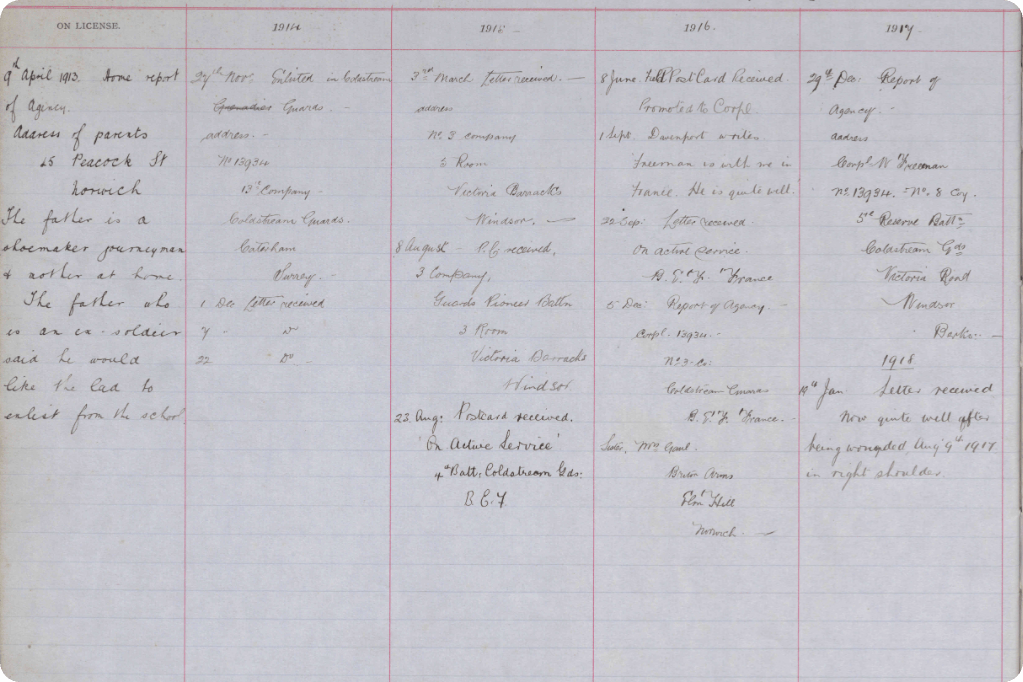 ON LICENSE.
9th April 1913. Home report
of Agency.
Address of parents
45 Peacock St
Norwich
The father is a
shoemaker journeyman
& mother at home.
The father who
is an ex-soldier
said he would
like the lad to
enlist from the school
1914
27th Nov: Enlisted in Coldstream
Grenadier Guards. -
address. -
No 13934
13th Company -
Coldstream Guards.
Caterham
Surrey. -
1 Dec Letter received
7 " Do
22 Do -
1915
3rd March Letter received. -
address
No. 3 Company
5 Room
Victoria Barracks
Windsor. -
8 August - P.C. received.
3 Company,
Guards Pioneer Battn
3 Room
Victoria Barracks
Windsor
23. Aug: Postcard received.
'On Active Service'
4th Batt: Coldstream Gds:
B.E.F
1916.
8 June. Field Post Card Received.
Promoted to Corpl.
1 Sept. Davenport writes
Freeman is with me in
France. He is quite well.
22 Sep: Letter received.
On active service.
B.E.F. France
5 Dec: Report of Agency. -
Corpl. 13934. -
No 3. Co:
Coldstream Guards
B.E.F. France. -
Sister, Mrs
Arms
Elm Hill
Norwich. -
1917.
29th Dec: Report of
Agency. -
address
Corpl W Freeman
No. 13934. - No. 8 Coy.
5th Reserve Battn
Coldstream Gds
Victoria Road
Windsor
Berks. -
1918
19th Jan Letter received
Now quite well after
being wounded Aug 9th 1917
in right shoulder.